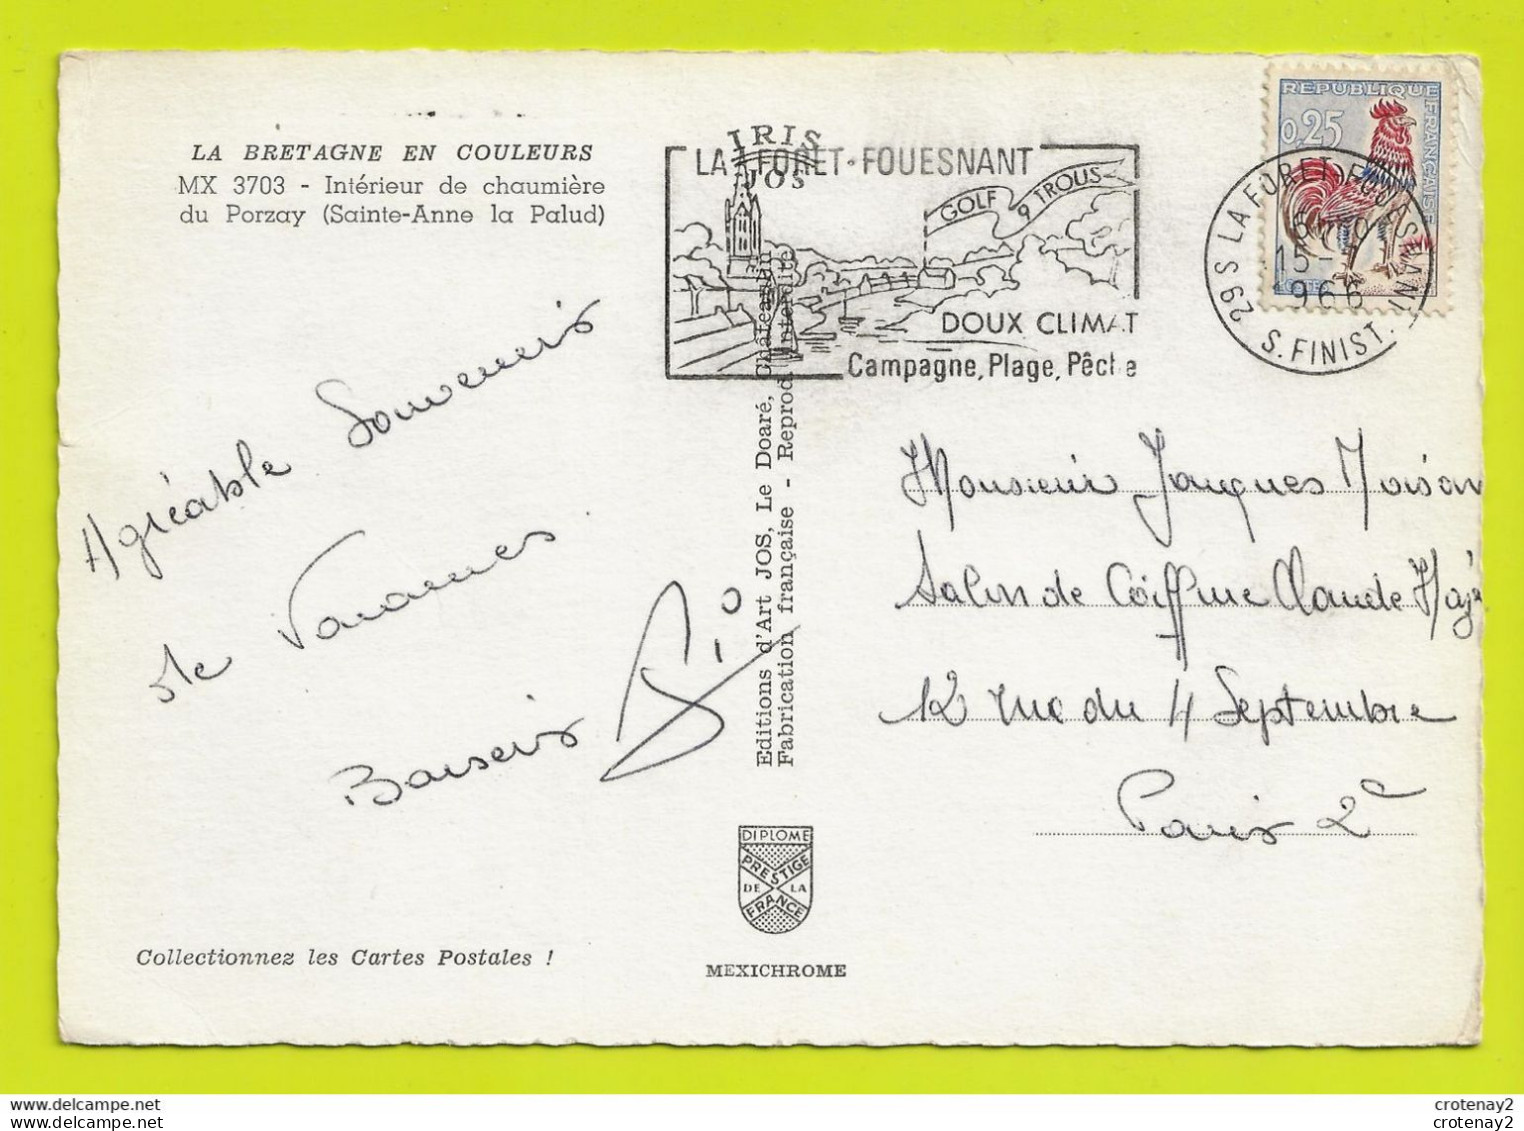 LA BRETAGNE EN COULEURS
MX 3703 - Intérieur de chaumière
du Porzay (Sainte-Anne la Palud)
IRIS
JOS
LA FORET-FOUESNANT
GOLF 9 TROUS
DOUX CLIMAT
Campagne, Plage, Pêche
REPUBLIQUE FRANÇAISE
0,25
29 S LA FORET-FOUESNANT
15 -
1966
S. FINIST.
Agréable Souvenirs
de Vacances
Baisers
Editions d'Art JOS, Le Doaré, Châteaulin
Fabrication française - Reprod. interdite
Monsieur Jacques Moison
Salon de Coiffure Claude
12 rue du 4 Septembre
Paris 2e
DIPLOME
PRESTIGE
DE LA
FRANCE
Collectionnez les Cartes Postales !
MEXICHROME
crotenay2
crotenay2